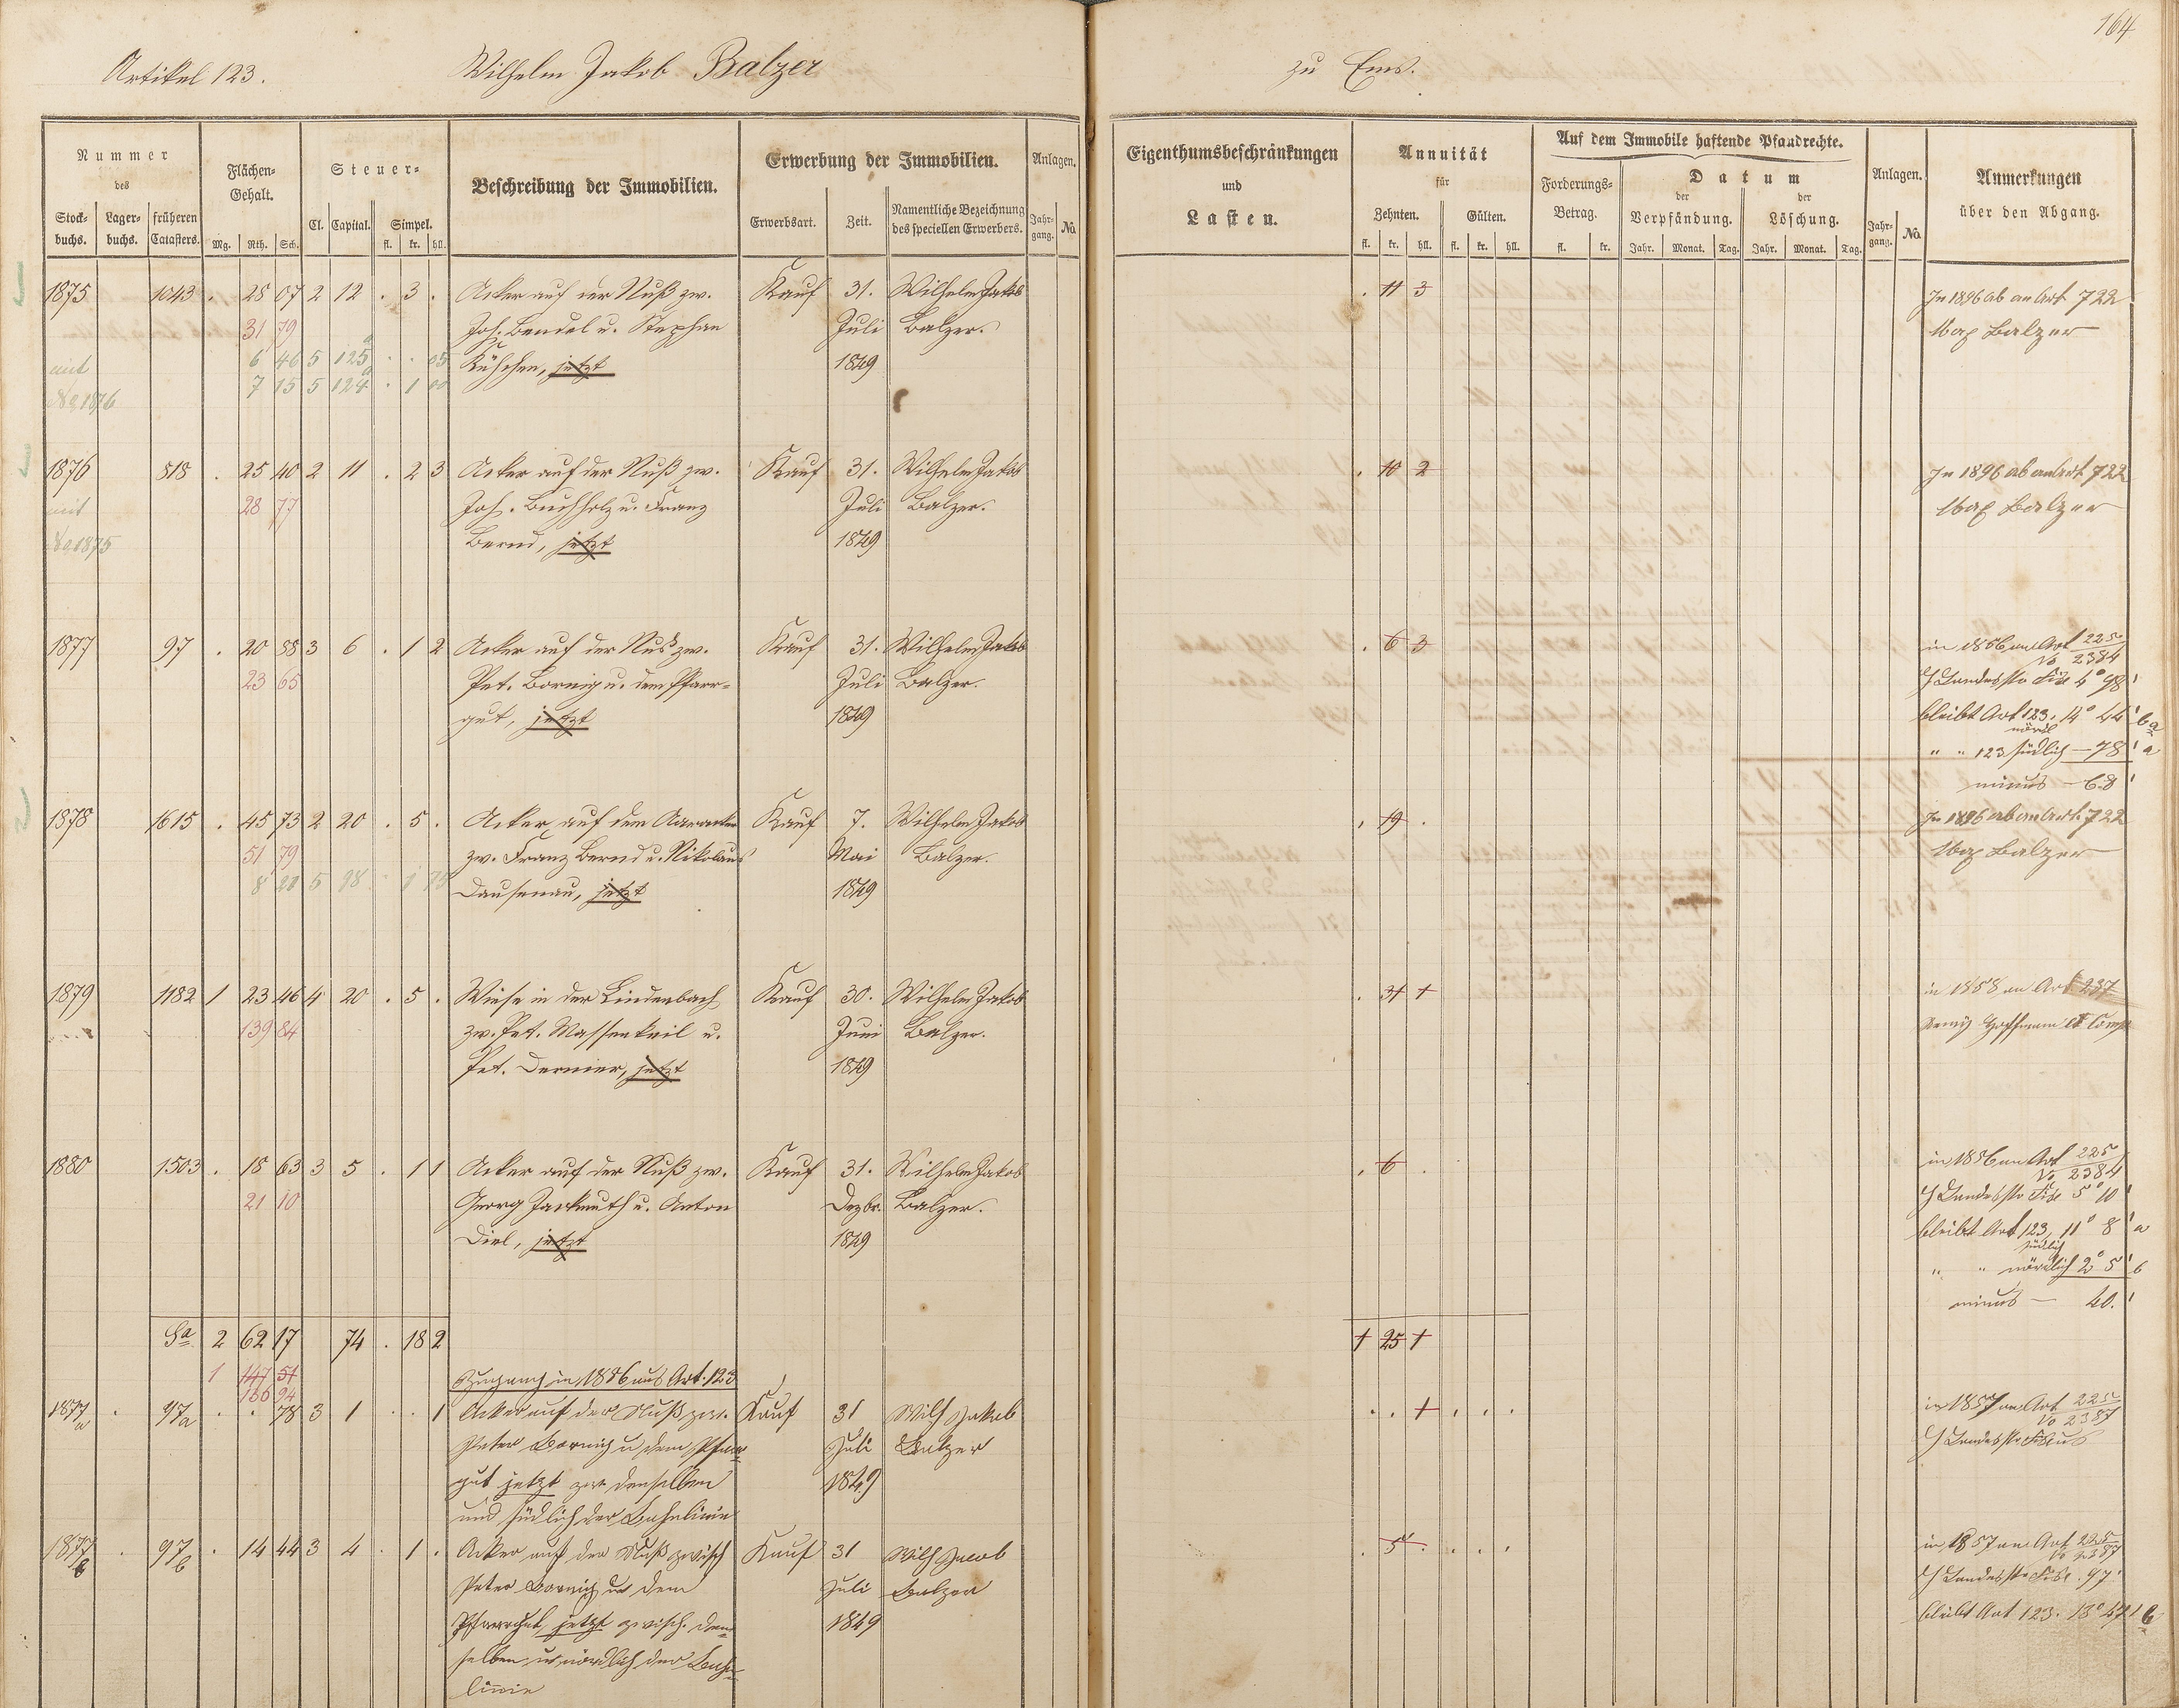 164
Artikel 123. Wilhelm Jakob Balzer zu Ems.
Nummer des
Stockbuchs. Lagerbuchs. früheren Catasters.
Flächen-Gehalt.
Mg. Rth. Sch.
Steuer-
Cl. Capital. Simpel.
fl. kr. hll.
Beschreibung der Immobilien.
Erwerbung der Immobilien.
Erwerbsart. Zeit. Namentliche Bezeichnung des speciellen Erwerbers.
Anlagen.
Jahrgang. No.
Eigenthumsbeschränkungen und Lasten.
Annuität für
Zehnten. Gülten.
fl. kr. hll. fl. kr. hll.
Auf dem Immobile haftende Pfandrechte.
Forderungs-Betrag.
fl. kr.
Datum
der Verpfändung. der Löschung.
Jahr. Monat. Tag. Jahr. Monat. Tag.
Anlagen.
Jahrgang. No.
Anmerkungen über den Abgang.
1875 1043 . 28 07 2 12 . 3 . Acker auf der Nuß zw. Kauf 31. Wilhelm Jakob . 11 3 In 1896 ab an Art 722
31 79 Joh. Bendel u. Stephan Juli Balzer. Balzer
mit 6 46 5 125 . . 95 Kühchen, jetzt 1849
No 1876 7 15 5 124 . 1 00
1876 818 . 25 40 2 11 . 2 3 Acker auf der Nuß zw. Kauf 31. Wilhelm Jakob . 10 2 In 1896 ab an Art 722
mit 28 77 Joh. Buchholz u. Franz Juli Balzer. Balzer
No 1875 Bernd, jetzt 1849
1877 97 . 20 88 3 6 . 1 2 Acker auf der Nuß zw. Kauf 31. Wilhelm Jakob . 6 3 in 1856 an Art 225
No 2384
23 65 Pet. Bornig u. dem Pfarr- Juli Balzer. 98'
gut, jetzt 1849 bleibt Art 123, 14° 44' b
" " 123 südlich – 78' a
minus – 68'
1878 1615 . 45 73 2 20 . 5 . Acker auf dem Kauf 7. Wilhelm Jakob . 19 . In 1896 ab an Art. 722
51 79 zw. Franz Bernd u. Nikolaus Mai Balzer. Balzer
8 5 98 Dausenau, jetzt 1849
1879 1182 1 23 46 4 20 . 5 . Wiese in der Lindenbach Kauf 30. Wilhelm Jakob . 31 1 in 1858 an Art 237
139 84 zw. Pet. Massenkeil u. Juni Balzer. Hoffmann et Comp
Pet. Dernier, jetzt 1849
1880 1503 . 18 63 3 5 . 1 1 Acker auf der Nuß zw. Kauf 31. Wilhelm Jakob . 6 . in 1856 an Art 225
No 2384
21 10 Georg Jackmuth u. Anton Dezbr. Balzer. 5° 10'
Diel, jetzt 1849 bleibt Art 123, 11° 8' a
südlich
" " nördlich 2° 5' b
minus – 40.'
Sa 2 62 17 74 . 18 2 1 25 1
1 147 51
166 94 Zugang in 1856 aus Art. 123
1877a . 97a . . 78 3 1 . . 1 Acker auf der Nuß zw. Kauf 31 Wilh Jakob . . 1 . . . in 1857 an Art 225
No 2387
Peter Bornig u dem Pfarr- Juli Balzer
gut jetzt zw. denselben 1849
und südlich der Bahnlinie
1877b . 97b . 14 44 3 4 . 1 . Acker auf der Nuß zwisch Kauf 31 Wilh Jacob . 5 . . . . in 1857 an Art 225
No 2387
Peter Bornig u. dem Juli Balzer 97'
Pfarrgut, jetzt zwisch. den- 1849 bleibt Art 123. 13° 47' b
selben u. nördlich der Bahn-
linie